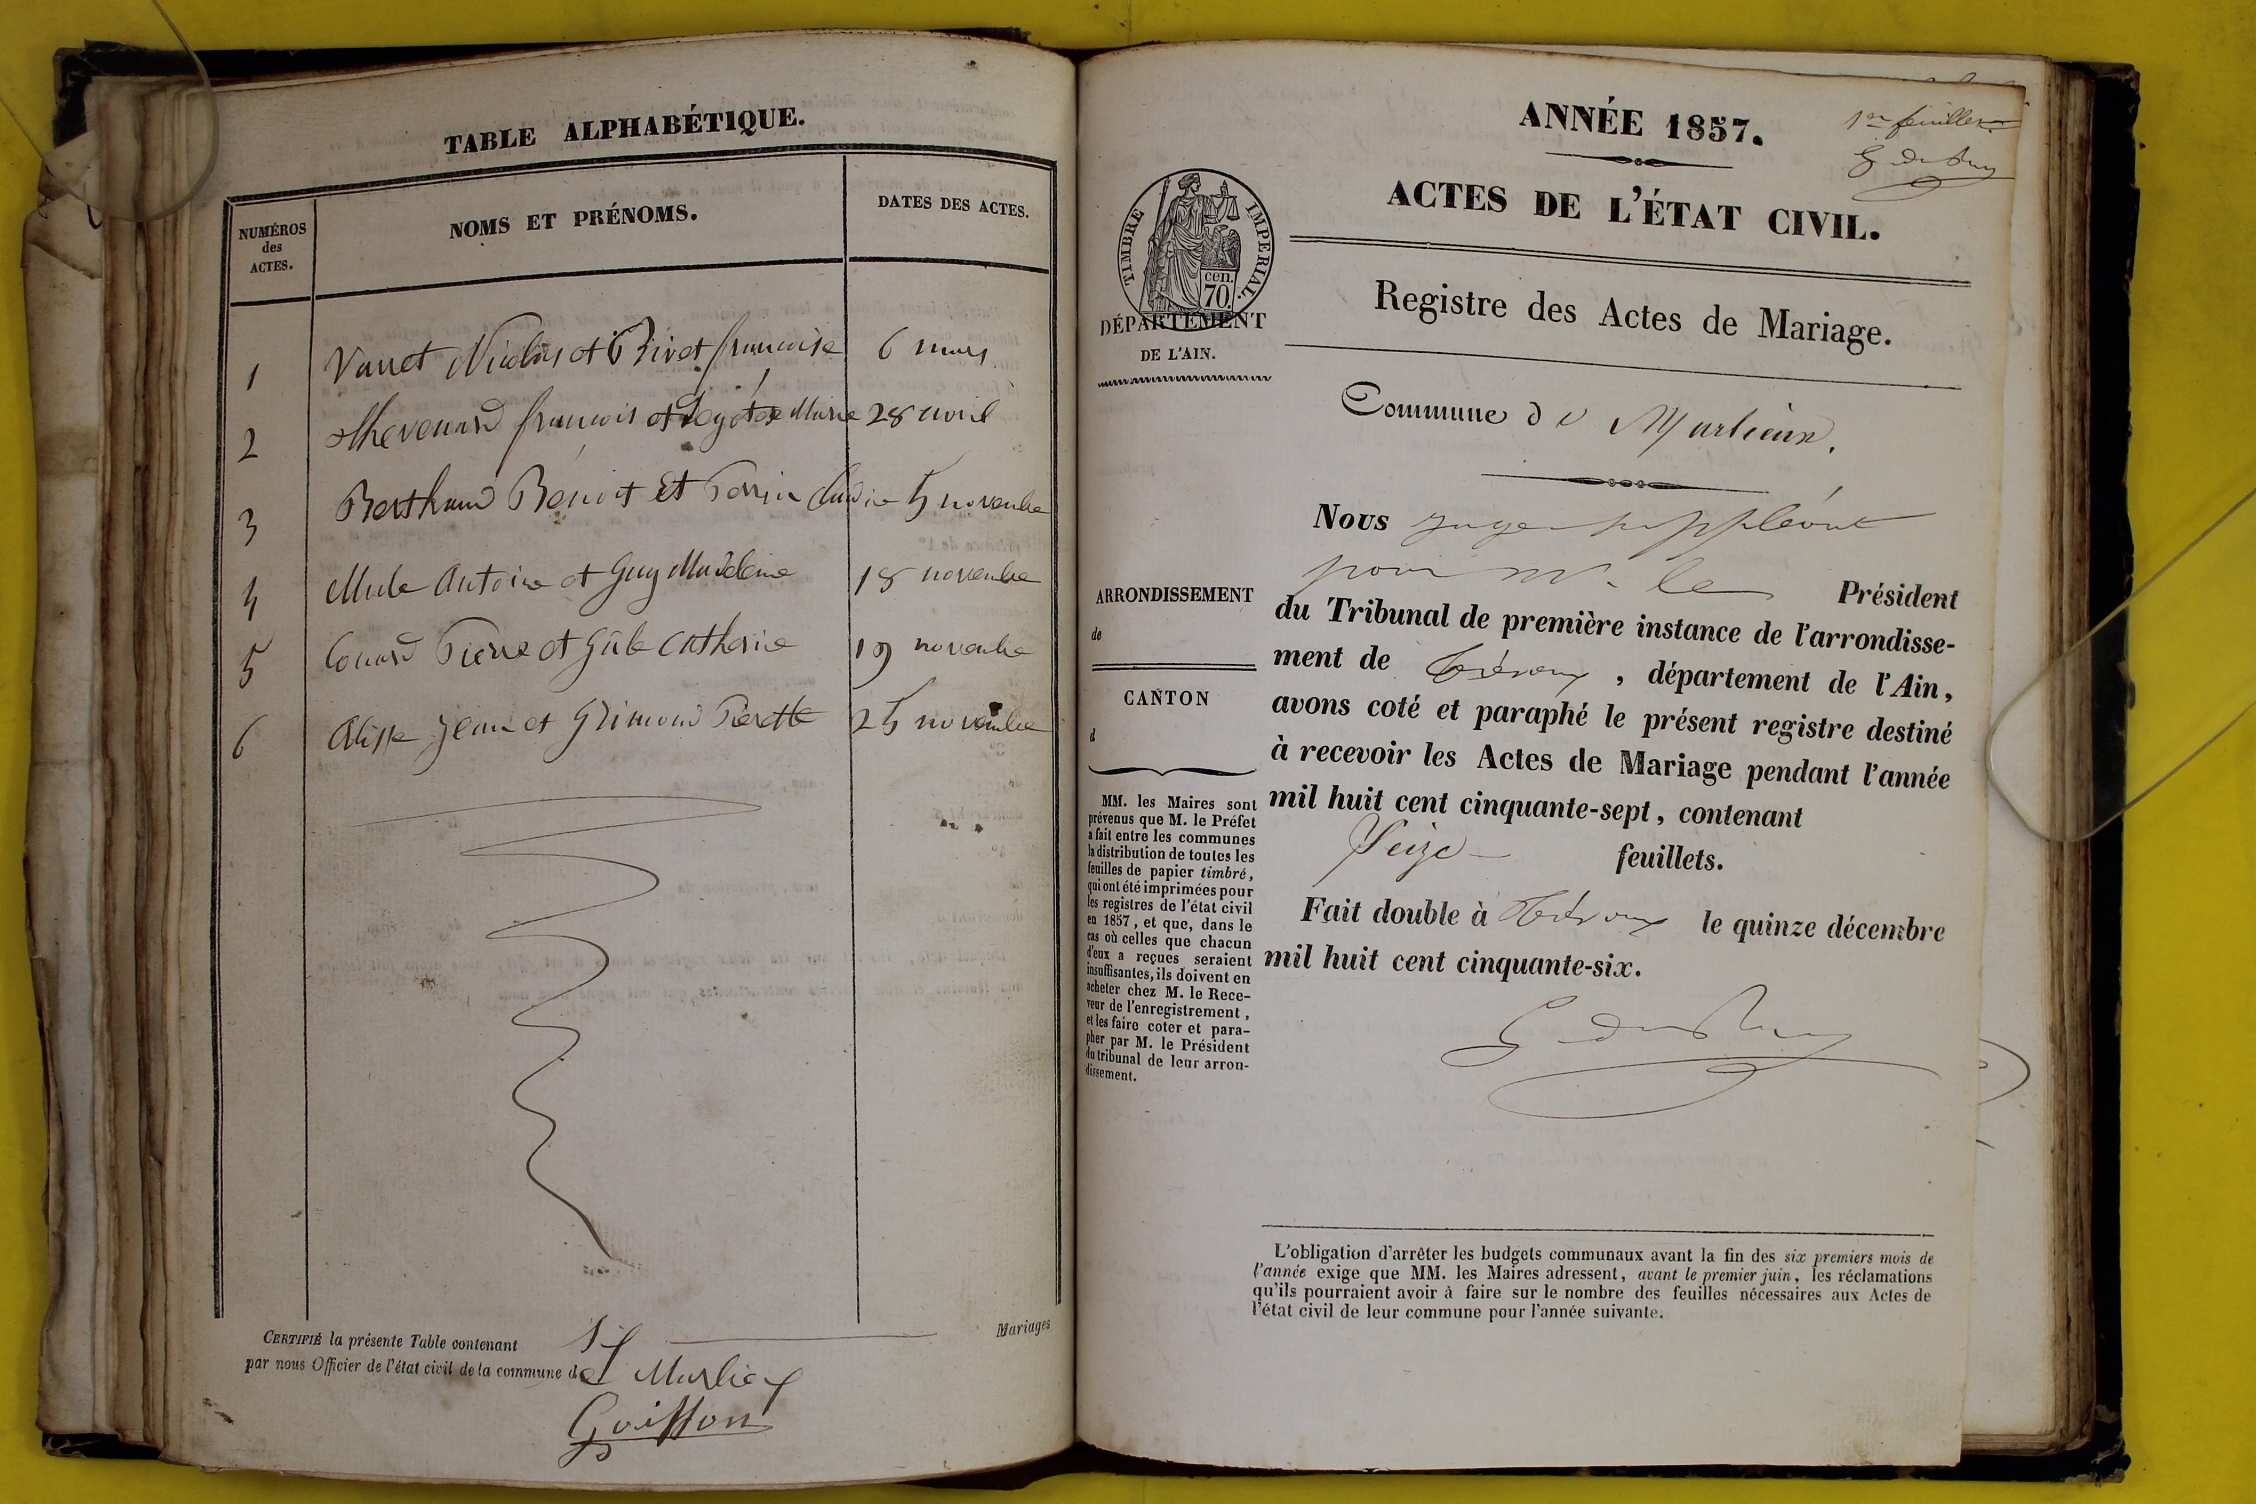 TABLE ALPHABÉTIQUE.
NUMÉROS
des
ACTES.
NOMS ET PRÉNOMS.
DATES DES ACTES.
1 Varret Nicolas et Rivet françoise 6 mars
2 Thevenard françois et Marie 28 avril
3 Berthaud Bénoit et Perrin Claudine 5 novembre
4 Mule Antoine et Guy Madeleine 18 novembre
5 Conard Pierre et Catherine 19 novembre
6 Jean et Grimond Pierette 25 novembre
CERTIFIÉ la présente Table contenant Six Mariages
par nous Officier de l'état civil de la commune de Marlieux
Goiffon
1er feuillet
ANNÉE 1857.
ACTES DE L'ÉTAT CIVIL.
TIMBRE IMPERIAL.
cen.
70.
DÉPARTEMENT
DE L'AIN.
Registre des Actes de Mariage.
Commune de Marlieux.
Nous juge suppléant
pour Mr le Président
du Tribunal de première instance de l'arrondisse-
ment de Trévoux, département de l'Ain,
avons coté et paraphé le présent registre destiné
à recevoir les Actes de Mariage pendant l'année
mil huit cent cinquante-sept, contenant
Seize feuillets.
Fait double à Trévoux le quinze décembre
mil huit cent cinquante-six.
ARRONDISSEMENT
de
CANTON
d
MM. les Maires sont
prévenus que M. le Préfet
a fait entre les communes
la distribution de toutes les
feuilles de papier timbré,
qui ont été imprimées pour
les registres de l'état civil
en 1857, et que, dans le
cas où celles que chacun
d'eux a reçues seraient
insuffisantes, ils doivent en
acheter chez M. le Rece-
veur de l'enregistrement,
et les faire coter et para-
pher par M. le Président
du tribunal de leur arron-
dissement.
L'obligation d'arrêter les budgets communaux avant la fin des six premiers mois de
l'année exige que MM. les Maires adressent, avant le premier juin, les réclamations
qu'ils pourraient avoir à faire sur le nombre des feuilles nécessaires aux Actes de
l'état civil de leur commune pour l'année suivante.